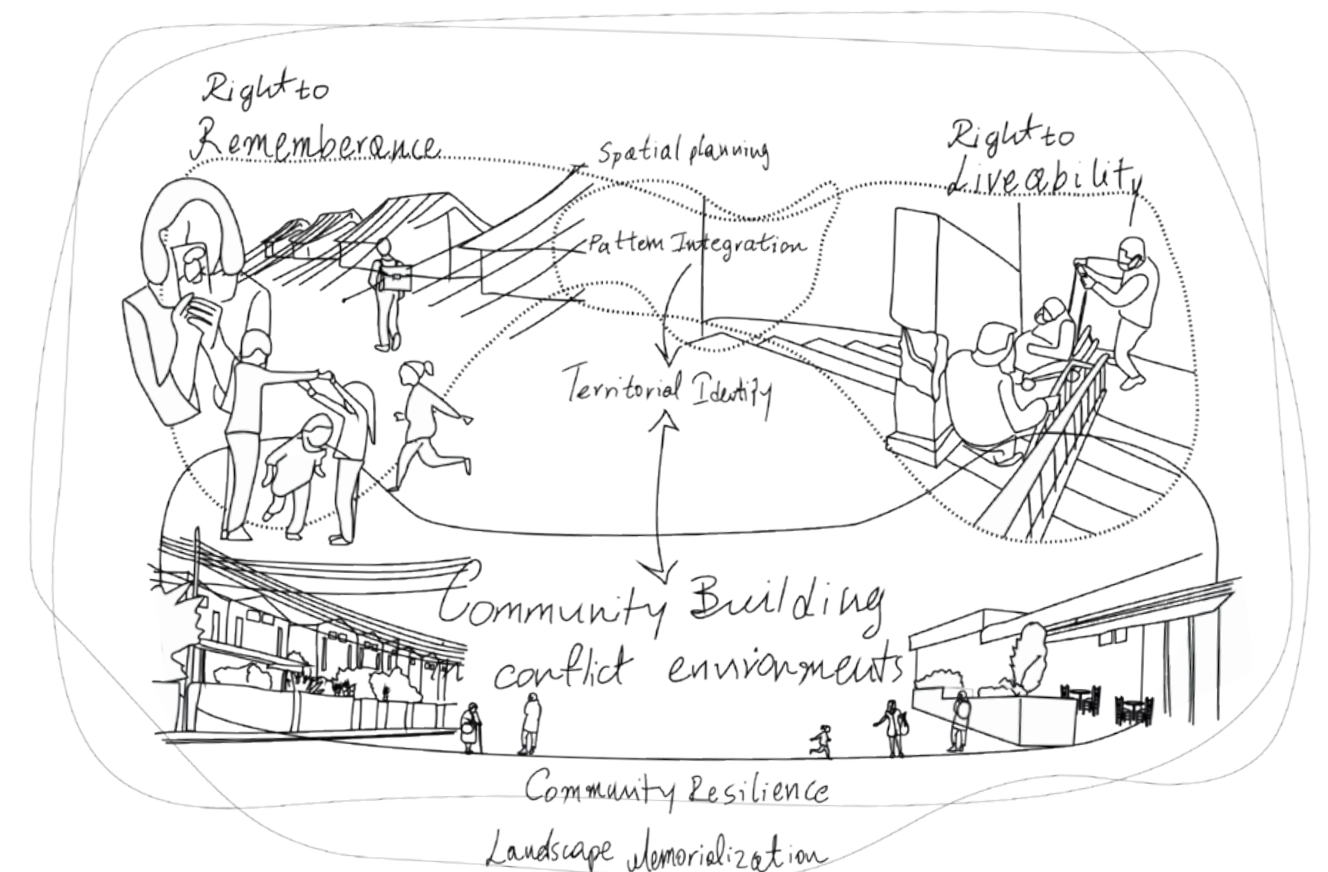 Right to
Rememberance
Spatial planning
Right to
Liveability
Pattern Integration
Territorial Identify
Community Building
in conflict environments
Community Resilience
Landscape Memorialization